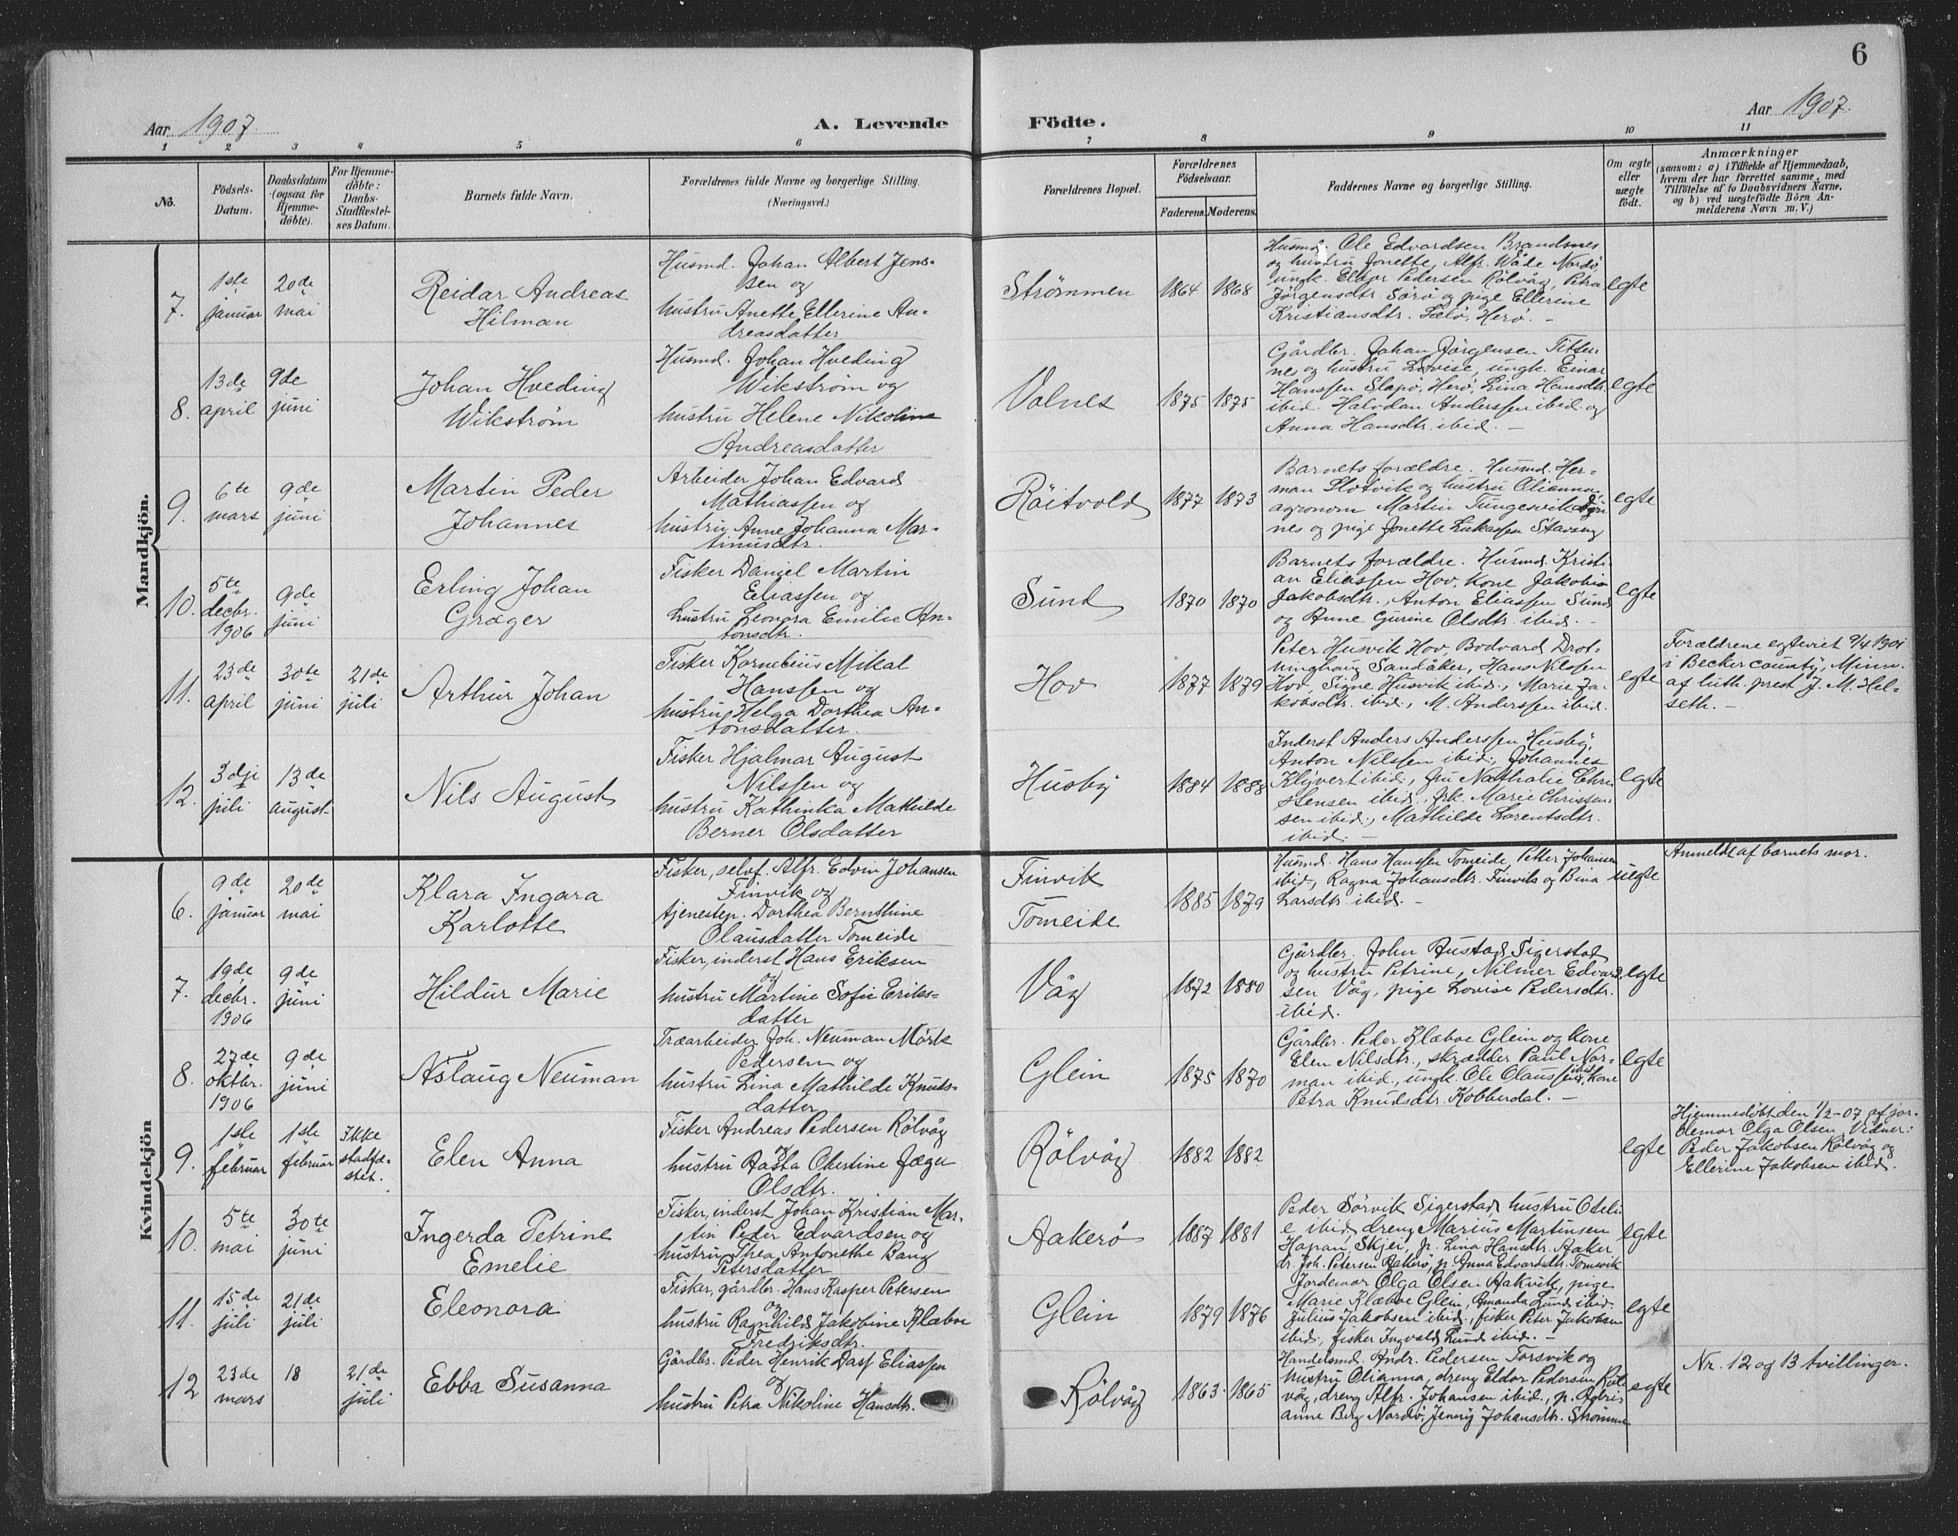 6
Aar 1907.
A. Levende
Födte.
Aar 1907.
1 2 3 4 5 6 7 8 9 10 11
No.
Födsels-
Datum.
Daabsdatum
(ogsaa for
Hjemme-
döbte).
For Hjemme-
döbte:
Daabs-
Stadfæstel-
ses Datum.
Barnets fulde Navn.
Forældrenes fulde Navne og borgerlige Stilling.
(Næringsvei.)
Forældrenes Bopæl.
Forældrenes
Födselsaar.
Faderens. Moderens.
Faddernes Navne og borgerlige Stilling.
Om ægte
eller
uægte
födt.
Anmærkninger
(saasom: a) i Tilfælde af Hjemmedaab,
hvem der har forrettet samme, med
Tilföielse af to Daabsvidners Navne,
og b) ved uægtefödte Börn An-
melderens Navn m. V.)
Mandkjön.
7.
1ste
januar
20de
mai
Reidar Andreas
Hilman
Husmd. Johan Albert Jens-
sen og
hustru Anette Ellerine An-
dreasdatter
Strømmen
1864 1868
Husmd. Ole Edvardsen Brandsnes
og hustru Jonette, Alfr. Wåde Nordö
ungk. Eldor Pedersen Rölvåg, Petra
Jörgensdtr. Sörö og pige Ellerine
Kristiansdtr. Herö. –
egte
8.
13de
april
9de
juni
Johan Hveding
Wikstrøm
Husmd. Johan Hveding
Wikstrøm og
hustru Helene Nikoline
Andreasdatter
Volnes
1875 1875
Gårdbr. Johan Jörgensen Titter-
nes og hustru Lovise, ungk. Einar
Hanssen Slapö, Herö, Lina Hansdtr.
ibid. Halvdan Anderssen ibid. og
Anna Hansdtr. ibid. –
egte
9.
6te
mars
9de
juni
Martin Peder
Johannes
Arbeider Johan Edvard
Mathiassen og
hustru Anne Johanna Mar-
tinusdtr.
Röitvold
1877 1873
Barnets forældre. Husmd. Her-
man Slotvik og hustru Olianna,
agronom Martin Tungesvik
nes og pige Jonette Lukassen Stavseng
egte
10.
5te
decbr.
1906
9de
juni
Erling Johan
Græger
Fisker Daniel Martin
Eliassen og
hustru Leonora Emilie An-
tonsdtr.
Sund
1870 1870
Barnets forældre. Husmd. Kristi-
an Eliassen Hov, kone Jakobine
Jakobsdtr., Anton Eliassen Sund
og Anne Gurine Olsdtr. ibid. –
egte
11.
23de
april
30te
juni
21de
juli
Arthur Johan
Fisker Kornelius Mikal
Hanssen og
hustru Helga Dorthea An-
tonsdatter.
Hov
1877 1879
Peter Husvik Hov, Bodvard Drot-
ninghaug Sandåker, Hans Nilssen
Hov, Signe Husvik ibid., Marie Ja-
kobsdtr. ibid., M. Anderssen ibid.
egte
Forældrene egteviet 9/4 1901
i Becker county, Minn.
af luth. prest J. M. Hel-
seth. –
12.
3dje
juli
13de
august
Nils August
Fisker Hjalmar August
Nilssen og
hustru Kathinka Mathilde
Berner Olsdatter
Husby
1884 1888
Inderst Anders Anderssen Husby,
Anton Nilssen ibid., Johannes
Klyvert ibid., fru Nathalie Chri-
stensen ibid., frk. Marie Christen-
sen ibid., Mathilde Lorentsdtr.
ibid. –
egte
Kvindekjön
6.
9de
januar
20de
mai
Klara Ingara
Karlotte
Fisker, selvf. Alfr. Edvin Johansen
Finvik og
tjenestep. Dorthea Bernthine
Olausdatter Tomeide
Finvik
Tomeide
1885 1879
Husmd. Hans Hanssen Tomeide, Petter Johansen
ibid., Ragna Johansdtr. Finvik og Bina
Larsdtr ibid. –
uegte
Anmeldt af barnets mor.
7.
19de
decbr.
1906
9de
juni
Hildur Marie
Fisker, inderst Hans Eriksen
og
hustru Martine Sofie Eriks-
datter
Våg
1872 1880
Gårdbr. John Austad Sigerstad
og hustru Petrine, Nilmer Edvard-
sen Våg, pige Lovise Pedersdtr.
ibid.
egte
8.
27de
oktbr.
1906
9de
juni
Aslaug Neuman
Træarbeider Joh. Neuman Mörk
Pedersen og
hustru Lina Mathilde Knuts-
datter
Glein
1875 1870
Gårdbr. Peder Klæboe Glein og kone
Elen Nilsdtr., skrædder Paul Nor-
man ibid., ungk. Ole Olaussen ibid., kone
Petra Knudsdtr. Kobberdal. –
egte
9.
1ste
februar
1ste
februar
Ikke
stadfæ-
stet.
Elen Anna
Fisker Andreas Pedersen Rölvåg
og
hustru Aasta Obertine Jæger
Olsdtr.
Rölvåg
1882 1882
egte
Hjemmedöbt den 1/2-07 af jor-
demor Olga Olsen. Vidner:
Peder Jakobsen Rölvåg og
Ellerine Jakobsen ibid.
10.
5te
mai
30te
juni
Ingerda Petrine
Emelie
Fisker, inderst Johan Kristian Mar-
tin Peder Edvardsen og
hustru Thea Antonethe Bang
Petersdatter
Aakerö
1887 1881
Peder Sörvik Sigerstad, hustru Oteli-
e ibid, dreng Marius Martinsen
Skjei, p. Lina Hansdtr. Aaker
dr. Joh. Petersen Aakerö, p. Anna Edvardsdtr. Tomsvik
egte
11.
15de
juli
21de
juli
Eleonora
Fisker, gårdbr. Hans Kasper Petersen
og
hustru Ragnhild Jakobine Klæboe
Fredriksdtr.
Glein
1879 1876
Jordemor Olga Olsen Aakvik, pige
Marie Klæboe Glein, Amanda Lund ibid.
Julius Jakobsen ibid., fisker Peter Jakobsen
ibid., fisker Ingvald Lund ibid. –
egte
12
23de
mars
18
21de
juli
Ebba Susanna
Gårdbr. Peder Henrik Dass Eliassen
og
hustru Petra Nikoline Hansdtr.
Rölvåg
1863 1865
Handelsmd. Andr. Pedersen Torsvik og
hustru Olianna, dreng Eldor Pedersen Röl-
våg, dreng Alfr. Johansen ibid., p. Agbri-
anne Berg Nordö, Jenny Johansdtr. Strømmen
egte
Nr. 12 og 13 tvillinger.